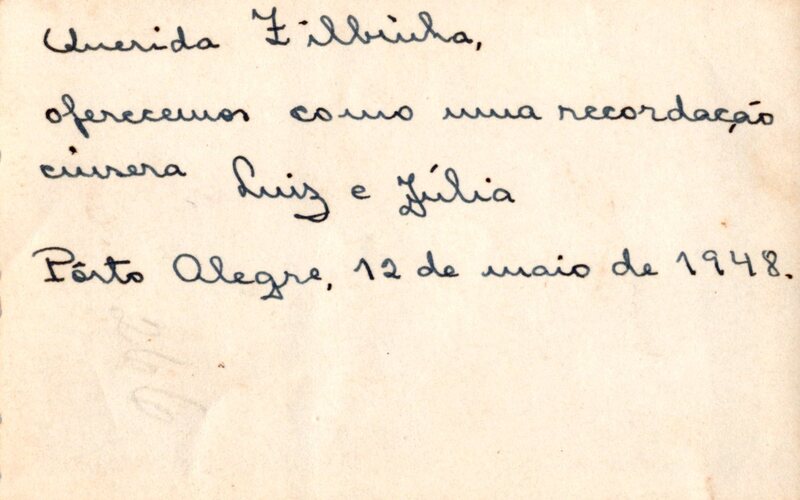 Querida Zilbinha,
oferecemos como uma recordação
cinsera Luiz e Júlia
Pôrto Alegre, 12 de maio de 1948.